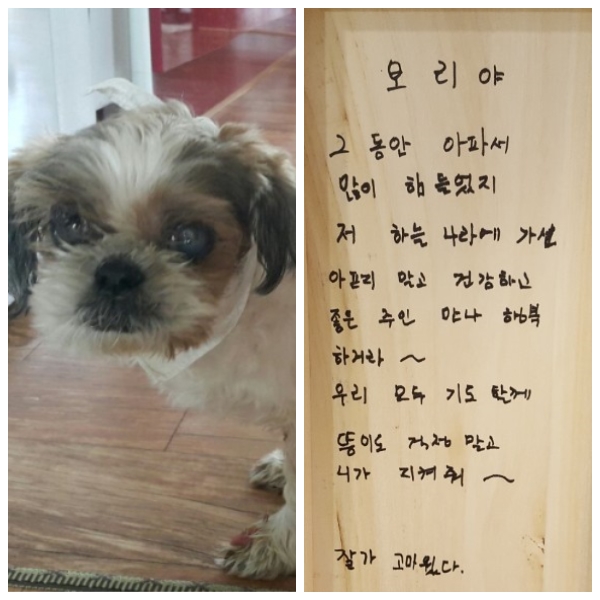 모리야
그 동안 아파서
많이 힘 들었지
저 하늘 나라에 가선
아프지 말고 건강하고
좋은 주인 만나 행복
하거라 ~
우리 모두 기도 할께
뚱이도 걱정 말고
니가 지켜줘 ~
잘가 고마웠다.